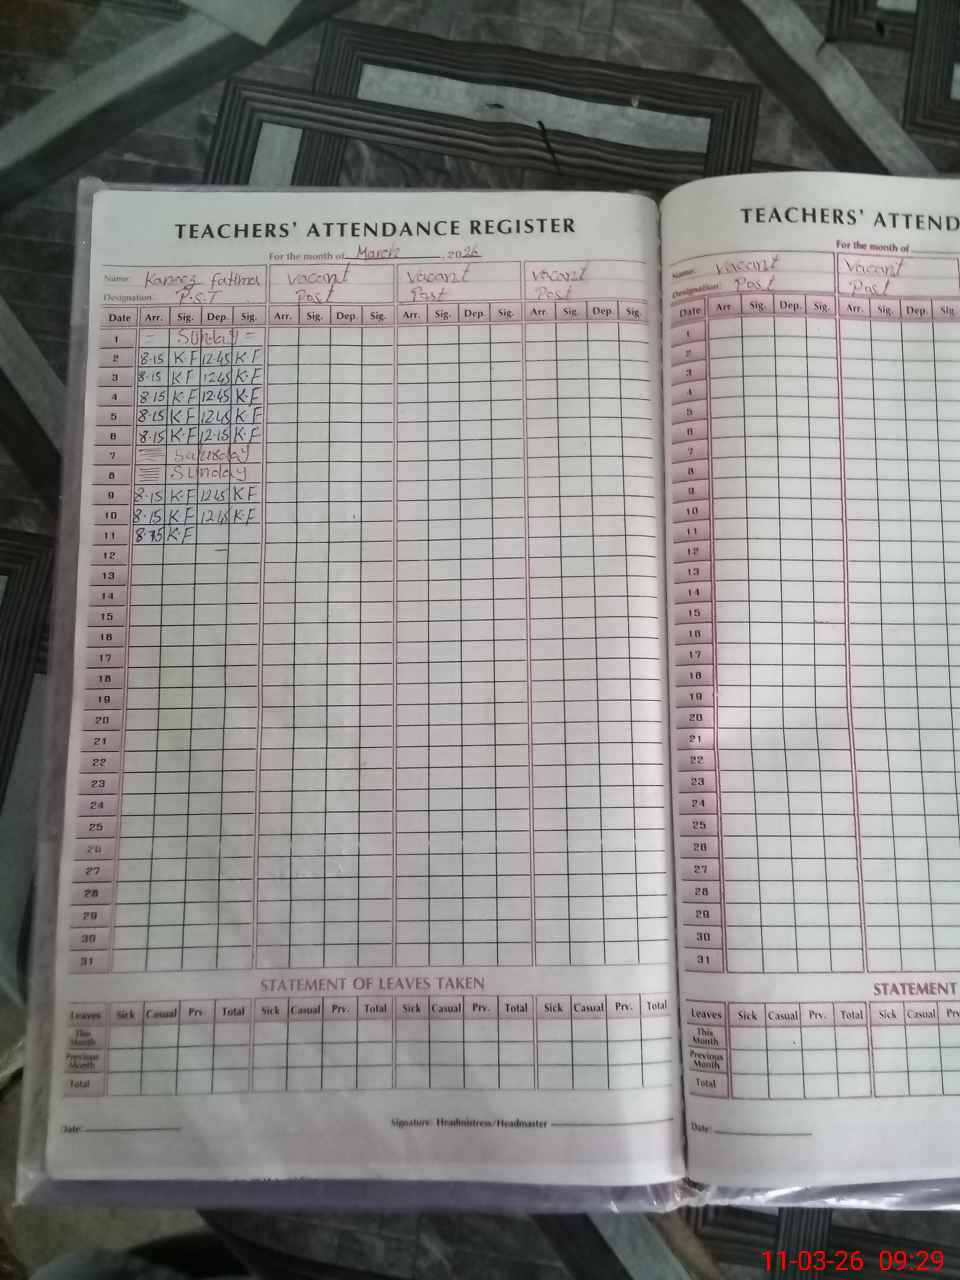 TEACHERS' ATTENDANCE REGISTER
For the month of March, 2026
Name: Kaneez Fatima Vacant Vacant Vacant
Designation: P.S.T Post Post Post
Date Arr. Sig. Dep. Sig. Arr. Sig. Dep. Sig. Arr. Sig. Dep. Sig. Arr. Sig. Dep. Sig.
1 = Sunday =
2 8-15 K.F 12.45 K.F
3 8-15 KF 1245 K.F
4 8.15 K.F 12.45 K.F
5 8.15 K.F 12.45 K.F
6 8.15 K.F 12.15 K.F
7 Saturday
8 Sunday
9 8.15 K.F 1245 KF
10 8.15 KF 12.45 K.F
11 8.15 K.F
12
13
14
15
16
17
18
19
20
21
22
23
24
25
26
27
28
29
30
31
STATEMENT OF LEAVES TAKEN
Leaves Sick Casual Prv. Total Sick Casual Prv. Total Sick Casual Prv. Total Sick Casual Prv. Total
This Month
Previous Month
Total
Date: Signature: Headmistress/Headmaster
TEACHERS' ATTEND
For the month of
Name: Vacant Vacant
Designation: Post Post
Date Arr. Sig. Dep. Sig. Arr. Sig. Dep. Sig.
1
2
3
4
5
6
7
8
9
10
11
12
13
14
15
16
17
18
19
20
21
22
23
24
25
26
27
28
29
30
31
STATEMENT
Leaves Sick Casual Prv. Total Sick Casual Prv
This Month
Previous Month
Total
Date:
11-03-26 09:29